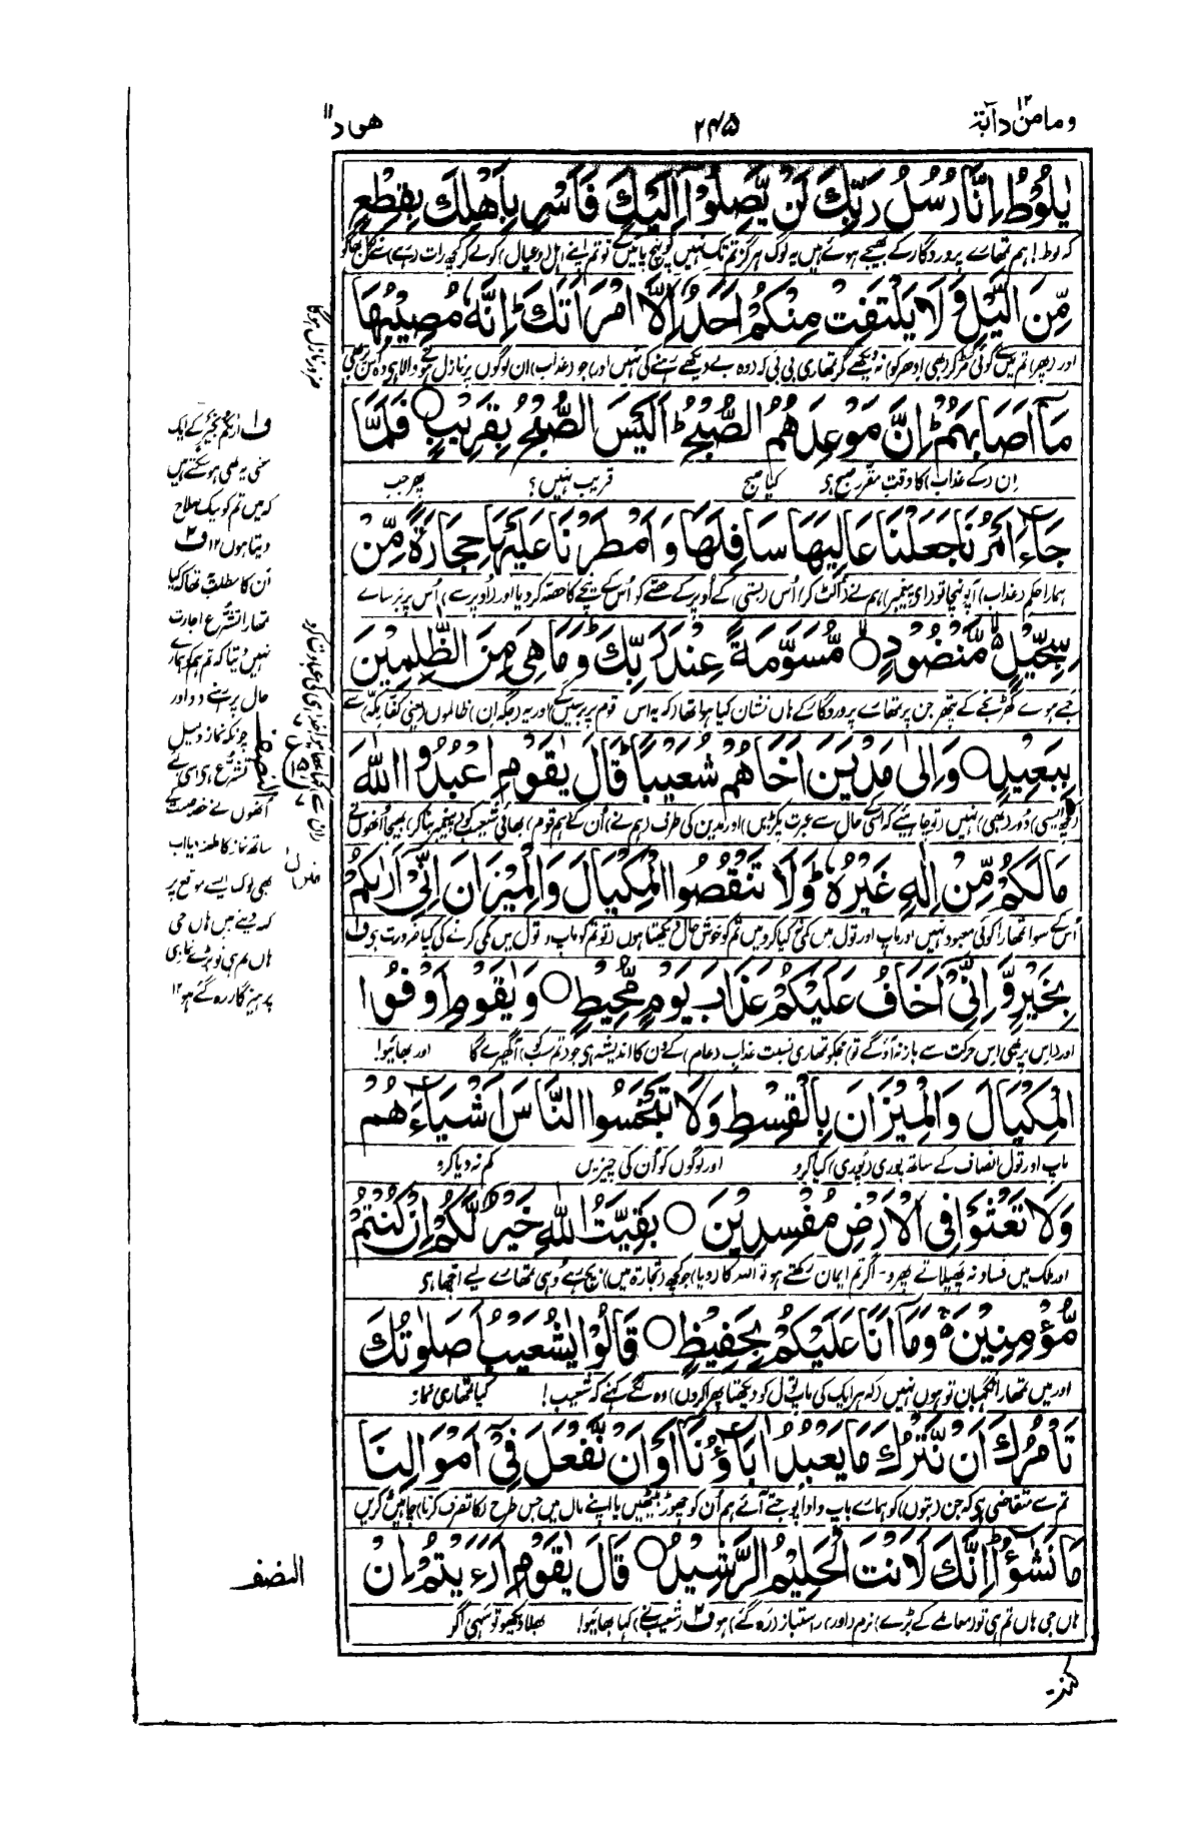 وما من دآبة ١٢
٢٤٥
هود ١١
يٰلُوْطُ اِنَّا رُسُلُ رَبِّكَ لَنْ يَّصِلُوْۤا اِلَيْكَ فَاَسْرِ بِاَهْلِكَ بِقِطْعٍ
کہ لوط! ہم تمھارے پروردگار کے بھیجے ہوئے ہیں یہ لوگ ہرگز تم تک نہیں پہنچ پائیں گے تو تم اپنے اہل (و عیال) کو لے کر کچھ رات رہے سے نکل بھاگو
مِّنَ الَّيْلِ وَلَا يَلْتَفِتْ مِنْكُمْ اَحَدٌ اِلَّا امْرَاَتَكَ ؕ اِنَّهٗ مُصِيْبُهَا
اور (پھر) تم میں سے کوئی مڑ کر (بھی ادھر کو) نہ دیکھے مگر تمھاری بی بی کہ (وہ بے دیکھے رہنے کی نہیں اور) جو (عذاب) ان لوگوں پر نازل ہونے والا ہے وہ اس پر بھی
ضرور نازل ہوگا
مَاۤ اَصَابَهُمْ ؕ اِنَّ مَوْعِدَهُمُ الصُّبْحُ ؕ اَلَيْسَ الصُّبْحُ بِقَرِيْبٍ ○ فَلَمَّا
اِن (کے عذاب) کا وقتِ مقرر صبح ہے کیا صبح قریب نہیں؟ پھر جب
جَآءَ اَمْرُنَا جَعَلْنَا عَالِيَهَا سَافِلَهَا وَ اَمْطَرْنَا عَلَيْهَا حِجَارَةً مِّنْ
ہمارا حکم (عذاب) آپہنچا تو (اے پیغمبر) ہم نے (الٹ کر) اُس (بستی) کے اُوپر کے حصّے کو اُس کے نیچے کا حصّہ کر دیا اور (اوپر سے) اُس پر برسائے
سِجِّيْلٍ ۙ مَّنْضُوْدٍ ○ مُّسَوَّمَةً عِنْدَ رَبِّكَ ؕ وَمَا هِيَ مِنَ الظّٰلِمِيْنَ
جمے ہوئے کھڑنجے کے پتھر جن پر تمھارے پروردگار کے ہاں نشان کیا ہوا تھا (کہ یہ اس قوم پر برسیں گے) اور یہ (جگہ ان) ظالموں (یعنی کفار مکہ) سے
بِبَعِيْدٍ ○ وَاِلٰى مَدْيَنَ اَخَاهُمْ شُعَيْبًا ؕ قَالَ يٰقَوْمِ اعْبُدُوا اللّٰهَ
(کچھ ایسی) دُور (بھی) نہیں (تو چاہئے کہ اس کے حال سے عبرت پکڑیں) اور مدین کی طرف (ہم نے) اُن کے (ہم قوم) بھائی شعیب کو (پیغمبر بنا کر) بھیجا اُنھوں نے
مَا لَكُمْ مِّنْ اِلٰهٍ غَيْرُهٗ ؕ وَلَا تَنْقُصُوا الْمِكْيَالَ وَالْمِيْزَانَ اِنِّيْۤ اَرٰىكُمْ
اُس کے سوا تمھارا کوئی معبود نہیں اور ماپ اور تول میں کمی نہ کیا کرو میں تم کو خوش حال دیکھتا ہوں (تو تم کو ماپ و تول میں کمی کرنے کی کیا ضرورت ہے) ف١
بِخَيْرٍ وَّ اِنِّيْۤ اَخَافُ عَلَيْكُمْ عَذَابَ يَوْمٍ مُّحِيْطٍ ○ وَيٰقَوْمِ اَوْفُوا
اور (اس پر بھی اس حرکت سے باز نہ آؤگے تو) مجھکو تمھاری نسبت عذاب (عام) کے دن کا اندیشہ ہے جو (تم سب کو) آگھیرے گا اور بھائیو!
الْمِكْيَالَ وَالْمِيْزَانَ بِالْقِسْطِ وَلَا تَبْخَسُوا النَّاسَ اَشْيَآءَهُمْ
ماپ اور تول انصاف کے ساتھ پوری (پوری) کیا کرو اور لوگوں کو اُن کی چیزیں کم نہ دیا کرو
وَلَا تَعْثَوْا فِي الْاَرْضِ مُفْسِدِيْنَ ○ بَقِيَّتُ اللّٰهِ خَيْرٌ لَّكُمْ اِنْ كُنْتُمْ
اور ملک میں فساد نہ پھیلاتے پھرو۔ اگر تم ایمان رکھتے ہو تو اللہ کا دیا (جو کچھ تجارۃ میں) بچ رہے وہی تمھارے لیے اچھا ہے
مُّؤْمِنِيْنَ ۚ وَمَاۤ اَنَا عَلَيْكُمْ بِحَفِيْظٍ ○ قَالُوْا يٰشُعَيْبُ اَصَلٰوتُكَ
اور میں تمھارا نگہبان تو ہوں نہیں (کہ ہر ایک کی ماپ تول کو دیکھتا پھرا کروں) وہ لگے کہنے کہ شعیب! کیا تمھاری نماز
تَاْمُرُكَ اَنْ نَّتْرُكَ مَا يَعْبُدُ اٰبَآؤُنَاۤ اَوْ اَنْ نَّفْعَلَ فِيْۤ اَمْوَالِنَا
تم سے متقاضی ہے کہ جن (بتوں) کو ہمارے باپ دادا پوجتے آئے ہم اُن کو چھوڑ بیٹھیں یا اپنے مال میں جس طرح (کا تصرف کرنا) چاہیں نہ کریں
مَا نَشٰٓؤُا ؕ اِنَّكَ لَاَنْتَ الْحَلِيْمُ الرَّشِيْدُ ○ قَالَ يٰقَوْمِ اَرَءَيْتُمْ اِنْ
ہاں جی ہاں تم ہی تو (معاملے کے بڑے) نرم (اور) راستباز (رہ گئے) ہو ف٢ (شعیب نے) کہا بھائیو! بھلا دیکھو تو سہی اگر
ف١ اور
سنی یہ بھی ہو سکتے ہیں
کہ میں تم کو نیک صلاح
دیتا ہوں ١٢ ف٢
اُن کا مطلب یہ تھا کہ کیا
تمھارا تشرع اجازت
نہیں دیتا کہ تم ہم کو ہمارے
حال پر رہنے دو اور
چونکہ نماز دلیل
تشرع ہے اسی لیے
اُنھوں نے خصوصیت کے
ساتھ نماز کا طعنہ دیا اب
بھی لوگ ایسے موقع پر
کہ دیتے ہیں ہاں جی
ہاں تم ہی تو بڑے نمازی
پرہیزگار رہ گئے ہو ١٢
النصف
النصف
منزل